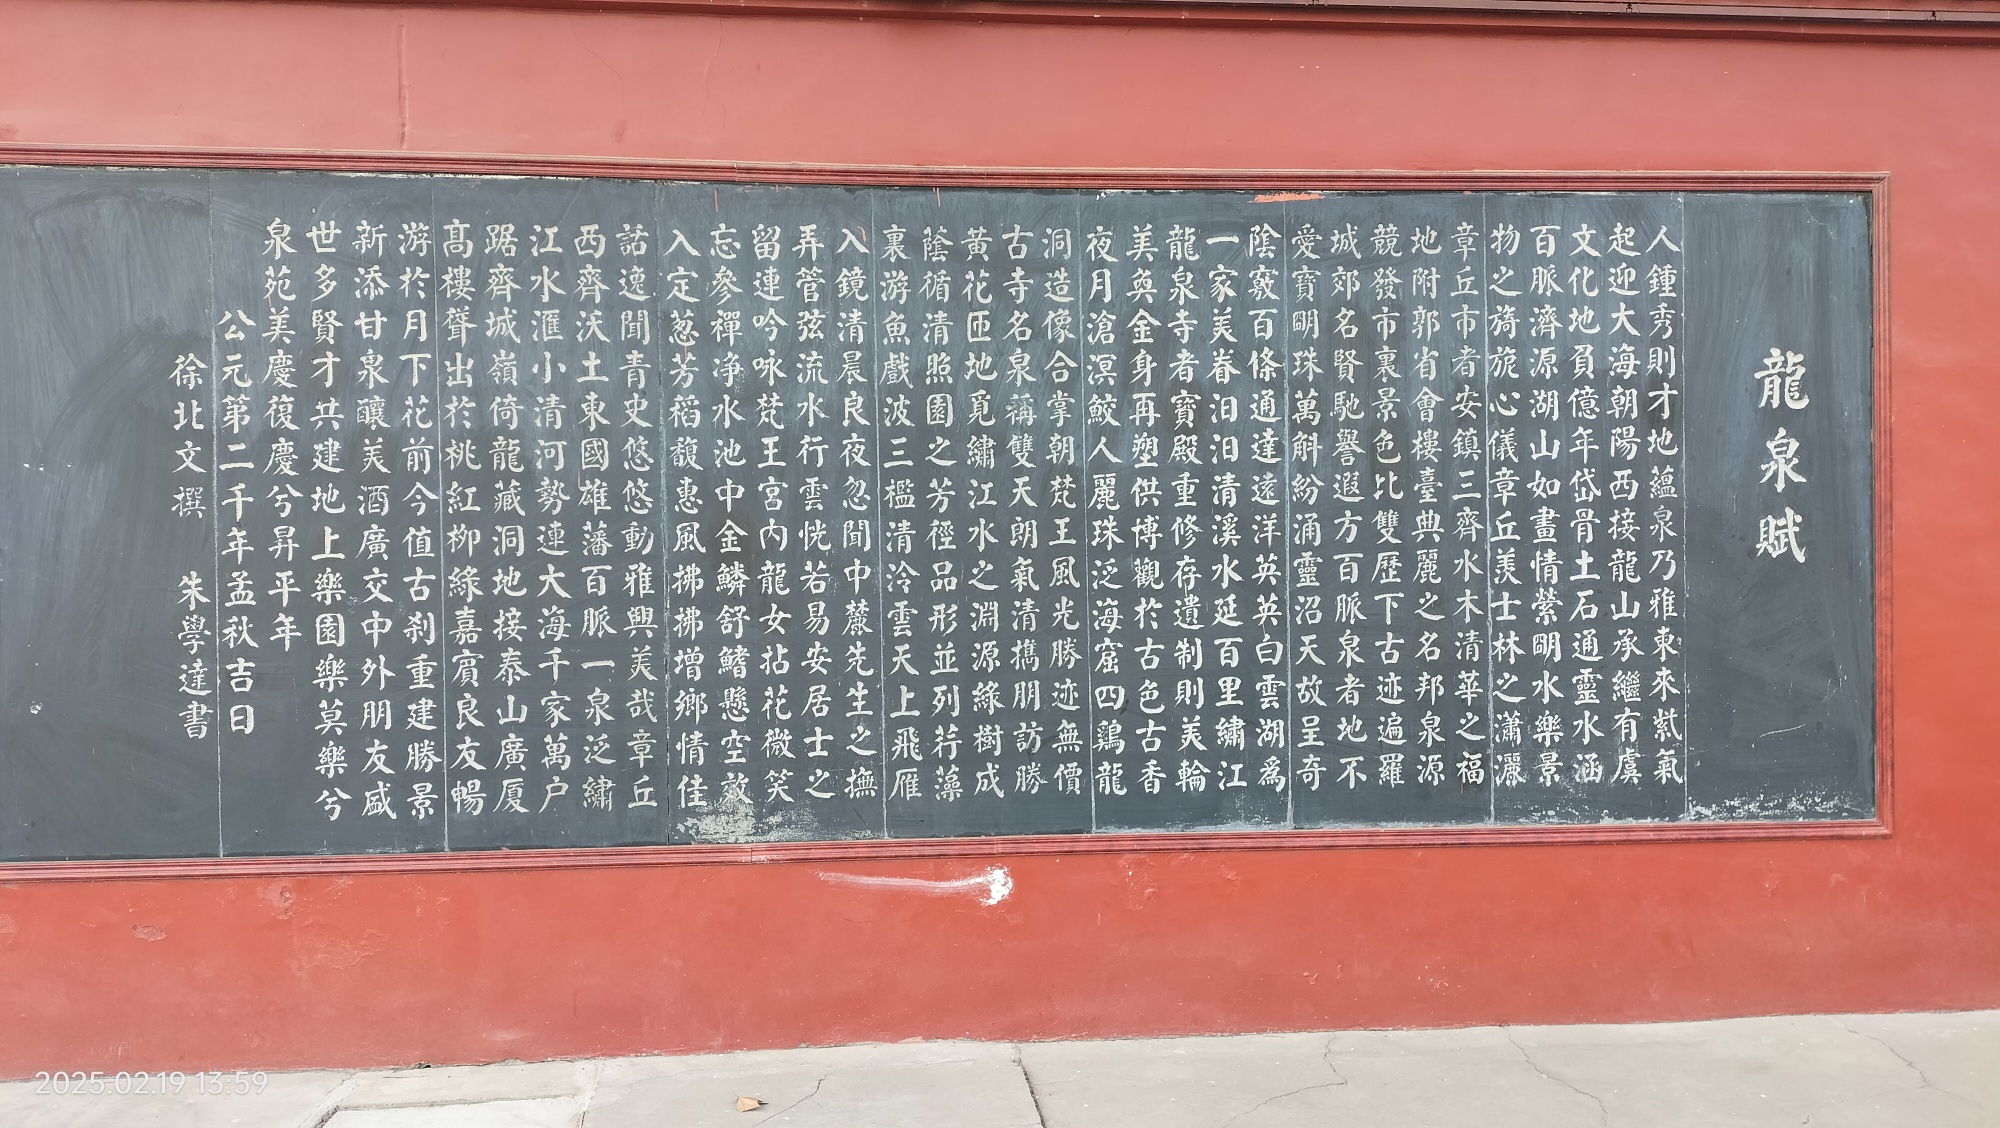 龍泉賦
人鍾秀則才地蘊泉乃雅東來紫氣
起迎大海朝陽西接龍山承繼有虞
文化地負億年岱骨土石通靈水涵
百脈濟源湖山如畫情縈明水樂景
物之旖旎心儀章丘羨士林之瀟灑
章丘市者安鎮三齊水木清華之福
地附郭省會樓臺典麗之名邦泉源
競發市裏景色比雙歷下古迹遍羅
城郊名賢馳譽遐方百脈泉者地不
愛寶明珠萬斛紛涌靈沼天故呈奇
陰竅百條通達遠洋英英白雲湖為
一家美眷汩汩清溪水延百里繡江
龍泉寺者寶殿重修存遺制則美輪
美奐金身再塑供博觀於古色古香
夜月滄溟鮫人麗珠泛海窟四鷄龍
洞造像合掌朝梵王風光勝迹無價
古寺名泉稱雙天朗氣清携朋訪勝
黃花匝地覓繡江水之淵源綠樹成
蔭循清照園之芳徑品形並列荇藻
裏游魚戲波三檻清泠雲天上飛雁
入鏡清晨良夜忽聞中麓先生之撫
弄管弦流水行雲恍若易安居士之
留連吟咏梵王宮內龍女拈花微笑
忘參禪净水池中金鱗舒鰭懸空效
入定葱芳稻馥惠風拂拂增鄉情佳
話逸聞青史悠悠動雅興美哉章丘
西齊沃土東國雄藩百脈一泉泛繡
江水滙小清河勢連大海千家萬户
踞齊城嶺倚龍藏洞地接泰山廣厦
髙樓聳出於桃紅柳綠嘉賓良友暢
游於月下花前今值古刹重建勝景
新添甘泉釀美酒廣交中外朋友盛
世多賢才共建地上樂園樂莫樂兮
泉苑美慶復慶兮昇平年
公元第二千年孟秋吉日
徐北文撰 朱學達書
2025.02.19 13:59